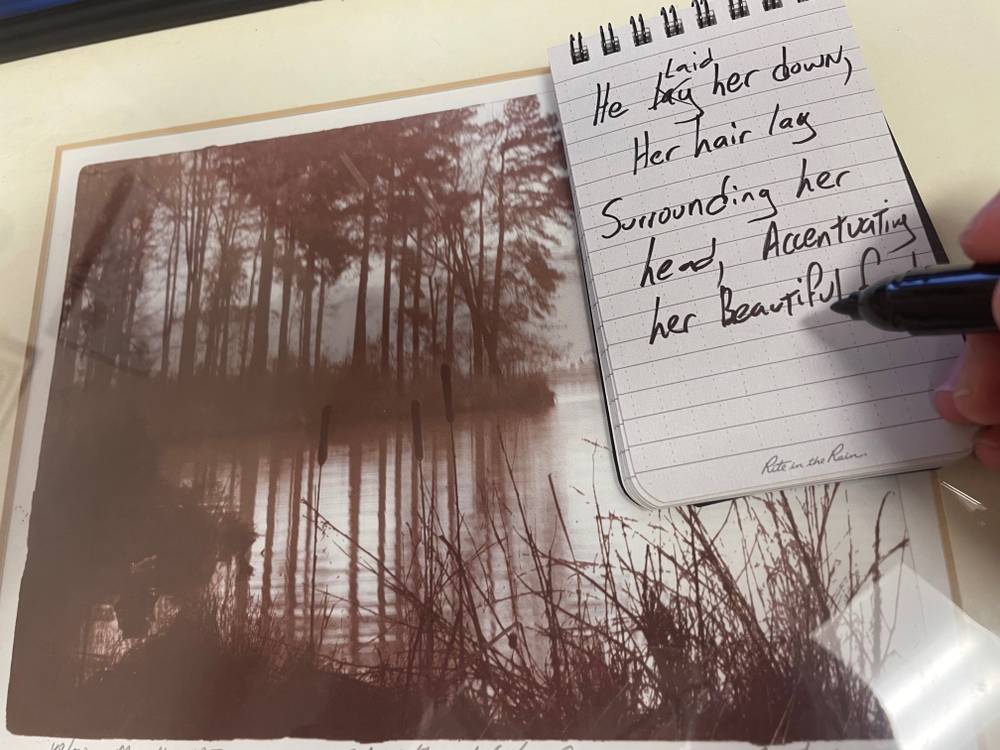 Laid
He lay her down,
Her hair lay
Surrounding her
head, Accentuating
her Beautiful
Rite in the Rain